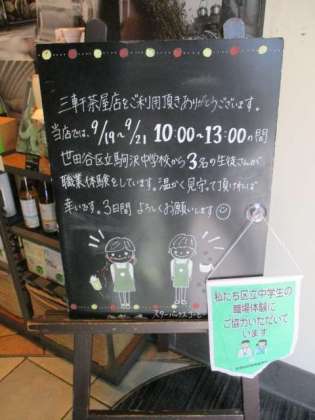 三軒茶屋店をご利用頂きありがとうございます。
当店では、9/19〜9/21 10:00〜13:00の間
世田谷区立駒沢中学校から3名の生徒さんが
職業体験をしています。温かく見守って頂ければ
幸いです。3日間よろしくお願いします☺
スターバックスコーヒー
私たち区立中学生の
職場体験に
ご協力いただいて
います